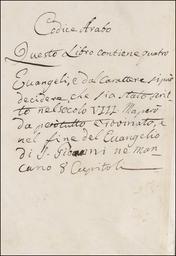 Codice Arabo
Questo Libro contiene quatro
Euangeli, e dal Carattere si può
decidere, che sia stato scrit-
to nel secolo VIII. Ma però
da pertutto è rovinato, e
nel fine del Euangelio
di S. Giovanni ne man-
cano 8 Capitoli